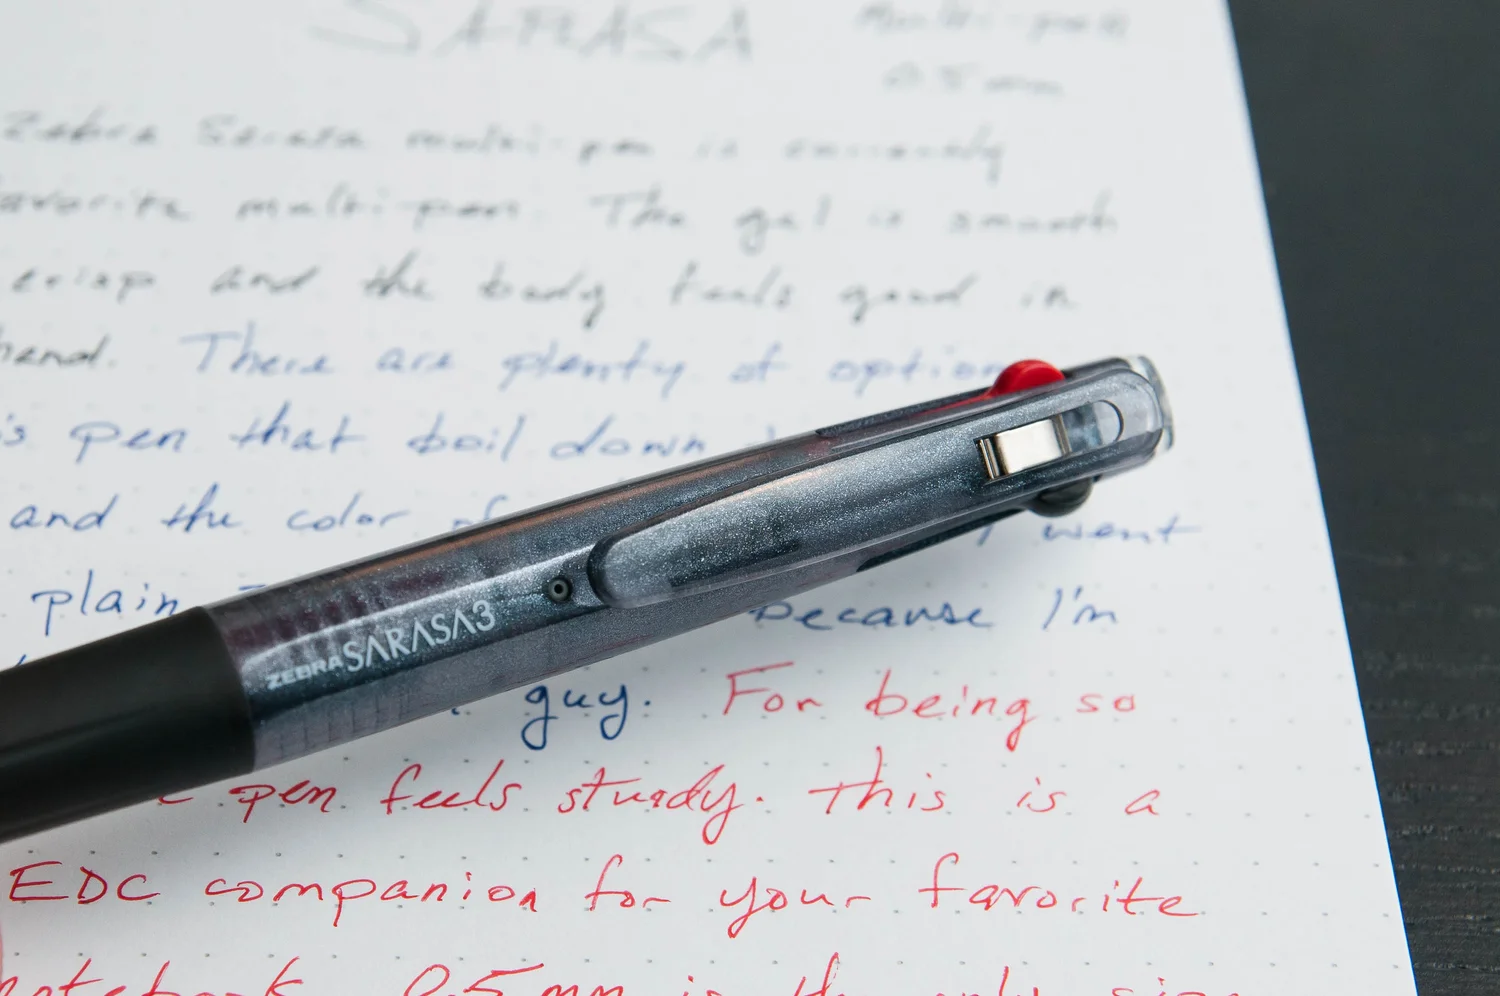 SARASA Multi-pen
0.5 mm
Zebra Sarasa multi-pen is currently
favorite multi-pen. The gel is smooth
crisp and the body feels good in
hand. There are plenty of option
s pen that boil down
and the color of
I went
plain
because I'm
ZEBRA SARASA3
guy. For being so
pen feels sturdy. This is a
EDC companion for your favorite
notebook. 0.5 mm is the only size